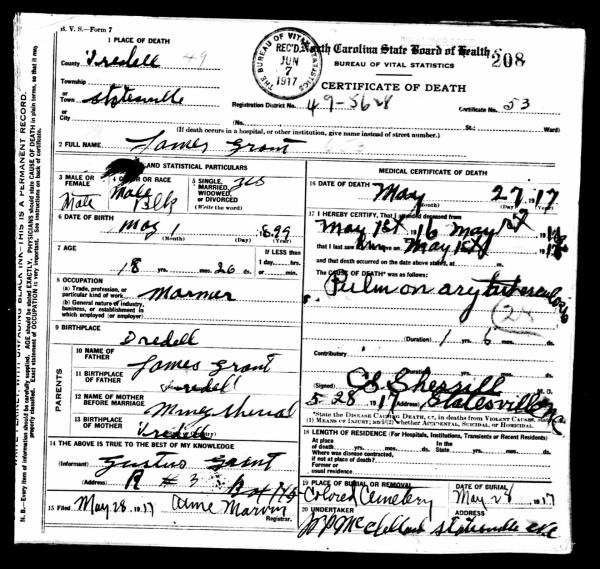 N. C. S. B. H. V. S.—Form 7
1 PLACE OF DEATH
County Iredell 49
Township
or
Town Statesville
or
City
THE BUREAU OF VITAL STATISTICS
REC'D
JUN
7
1917
North Carolina State Board of Health
208
BUREAU OF VITAL STATISTICS
CERTIFICATE OF DEATH
Registration District No. 49-5628 Certificate No. 53
(No. St.; Ward)
(If death occurs in a hospital, or other institution, give name instead of street number.)
2 FULL NAME James Grant
PERSONAL AND STATISTICAL PARTICULARS
3 MALE OR FEMALE Male
4 COLOR OR RACE Male Blk
5 SINGLE, MARRIED, WIDOWED, OR DIVORCED (Write the word)
6 DATE OF BIRTH May 1 1899
(Month) (Day) (Year)
7 AGE 18 yrs. mos. 26 ds.
If LESS than
1 day, hrs.
or min.
8 OCCUPATION
(a) Trade, profession, or
particular kind of work
(b) General nature of industry,
business, or establishment in
which employed (or employer)
9 BIRTHPLACE Iredell
PARENTS
10 NAME OF FATHER James Grant
11 BIRTHPLACE OF FATHER Iredell
12 NAME OF MOTHER BEFORE MARRIAGE
13 BIRTHPLACE OF MOTHER Iredell
14 THE ABOVE IS TRUE TO THE BEST OF MY KNOWLEDGE
(Informant) Gustus Grant
(Address) R # 3
15 Filed May 28 1917 Marvin
Registrar.
MEDICAL CERTIFICATE OF DEATH
16 DATE OF DEATH May 27 1917
(Month) (Day) (Year)
17 I HEREBY CERTIFY, That I attended deceased from
May 1st 1916 May 1st 191
that I last saw him on May 1st 191
and that death occurred on the date above stated, at m.
The CAUSE OF DEATH* was as follows:
Pulmonary tuberculosis
28
(Duration) 1 yrs. 6 mos. ds.
Contributory
(Duration) yrs. mos. ds.
(Signed) Sherrill M. D.
5 28 1917 (Address) Statesville NC
*State the DISEASE CAUSING DEATH, or, in deaths from VIOLENT CAUSES, state
(1) MEANS OF INJURY; and (2) whether ACCIDENTAL, SUICIDAL, or HOMICIDAL.
18 LENGTH OF RESIDENCE (For Hospitals, Institutions, Transients or Recent Residents)
At place
of death yrs. mos. ds. In the State yrs. mos. ds.
Where was disease contracted,
if not at place of death?
Former or
usual residence
19 PLACE OF BURIAL OR REMOVAL Colored Cemetery
DATE OF BURIAL May 28 1917
20 UNDERTAKER McClelland
ADDRESS Statesville NC